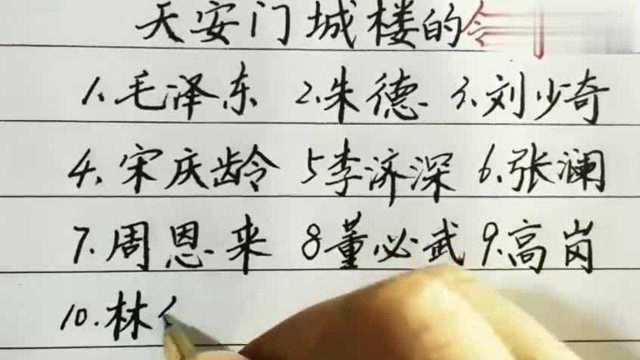 天安门城楼的
1.毛泽东 2.朱德 3.刘少奇
4.宋庆龄 5李济深 6.张澜
7.周恩来 8董必武 9.高岗
10.林